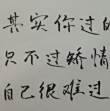 其实你过的
只不过矫情
自己很难过